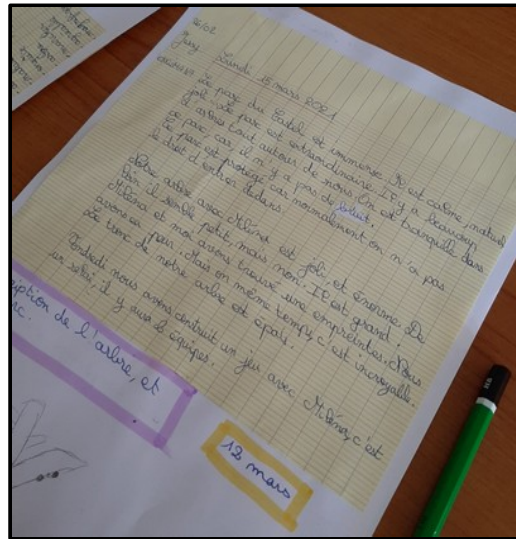 Lundi 15 mars 2021
Le parc du Castel est immense. Il est calme, naturel,
joli. Le parc est extraordinaire. Il y a beaucoup
d'arbres tout autour de nous. On est tranquille dans
ce parc, car il n'y a pas de bruit.
Le parc est protégé car normalement on n'a pas
le droit d'entrer dedans.
Notre arbre avec Miléna est joli, et énorme. De
loin il semble petit, mais non. Il est grand.
Miléna et moi avons trouvé une empreintes. Nous
avons eu peur. Mais en même temps, c'est incroyable.
Le tronc de notre arbre est épais.
Vendredi nous avons construit un jeu avec Miléna, c'est
un , il y aura 2 équipes.
ription de l'arbre, et
rc.
12 mars